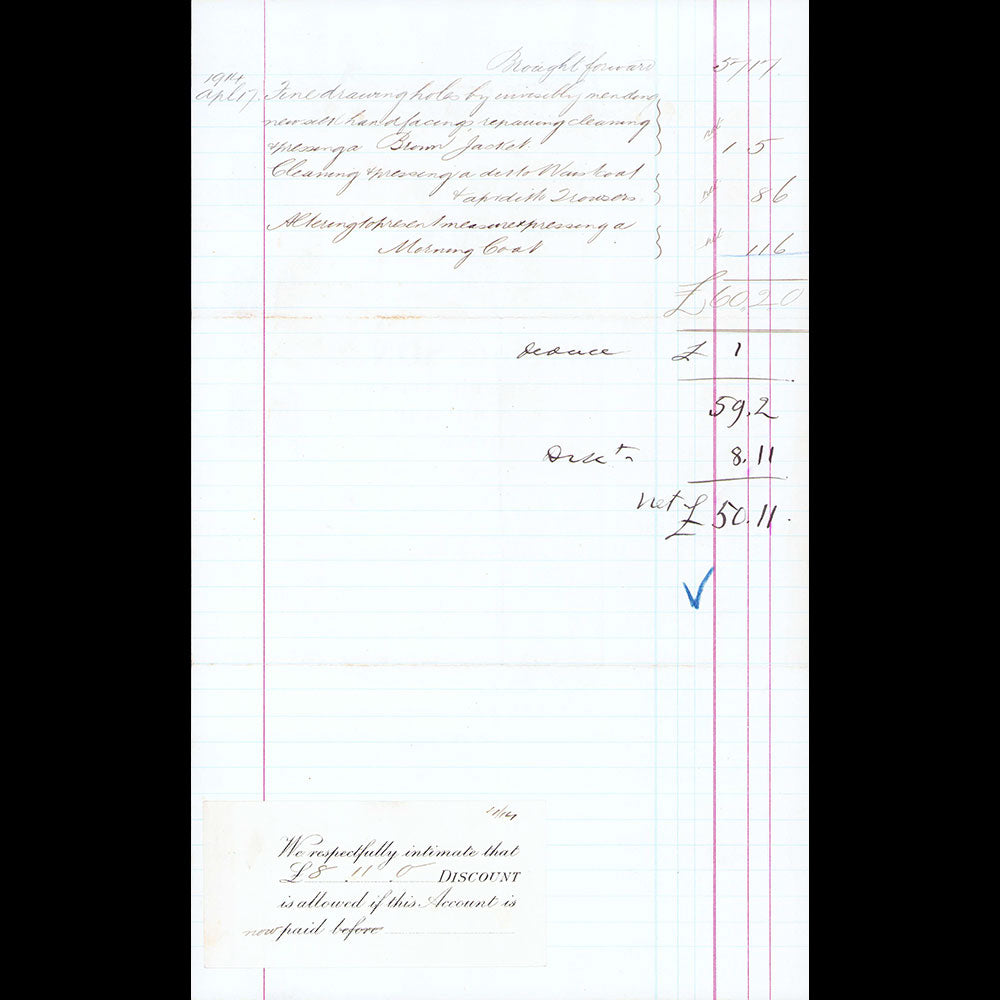 Brought forward 57 17.
1914
Apl 17. Fine drawing holes by invisibly mending
new silk hand facings, repairing cleaning
& pressing a Brown Jacket. net 1 5
Cleaning & pressing a ditto Waistcoat
& a pr ditto Trousers. net 8 6
Altering to present measure & pressing a
Morning Coat net 11 6
£ 60. 2. 0
deduce £ 1
59. 2
Disct 8. 11
net £ 50. 11.
We respectfully intimate that
£8 . 11 . 0 DISCOUNT
is allowed if this Account is
now paid before